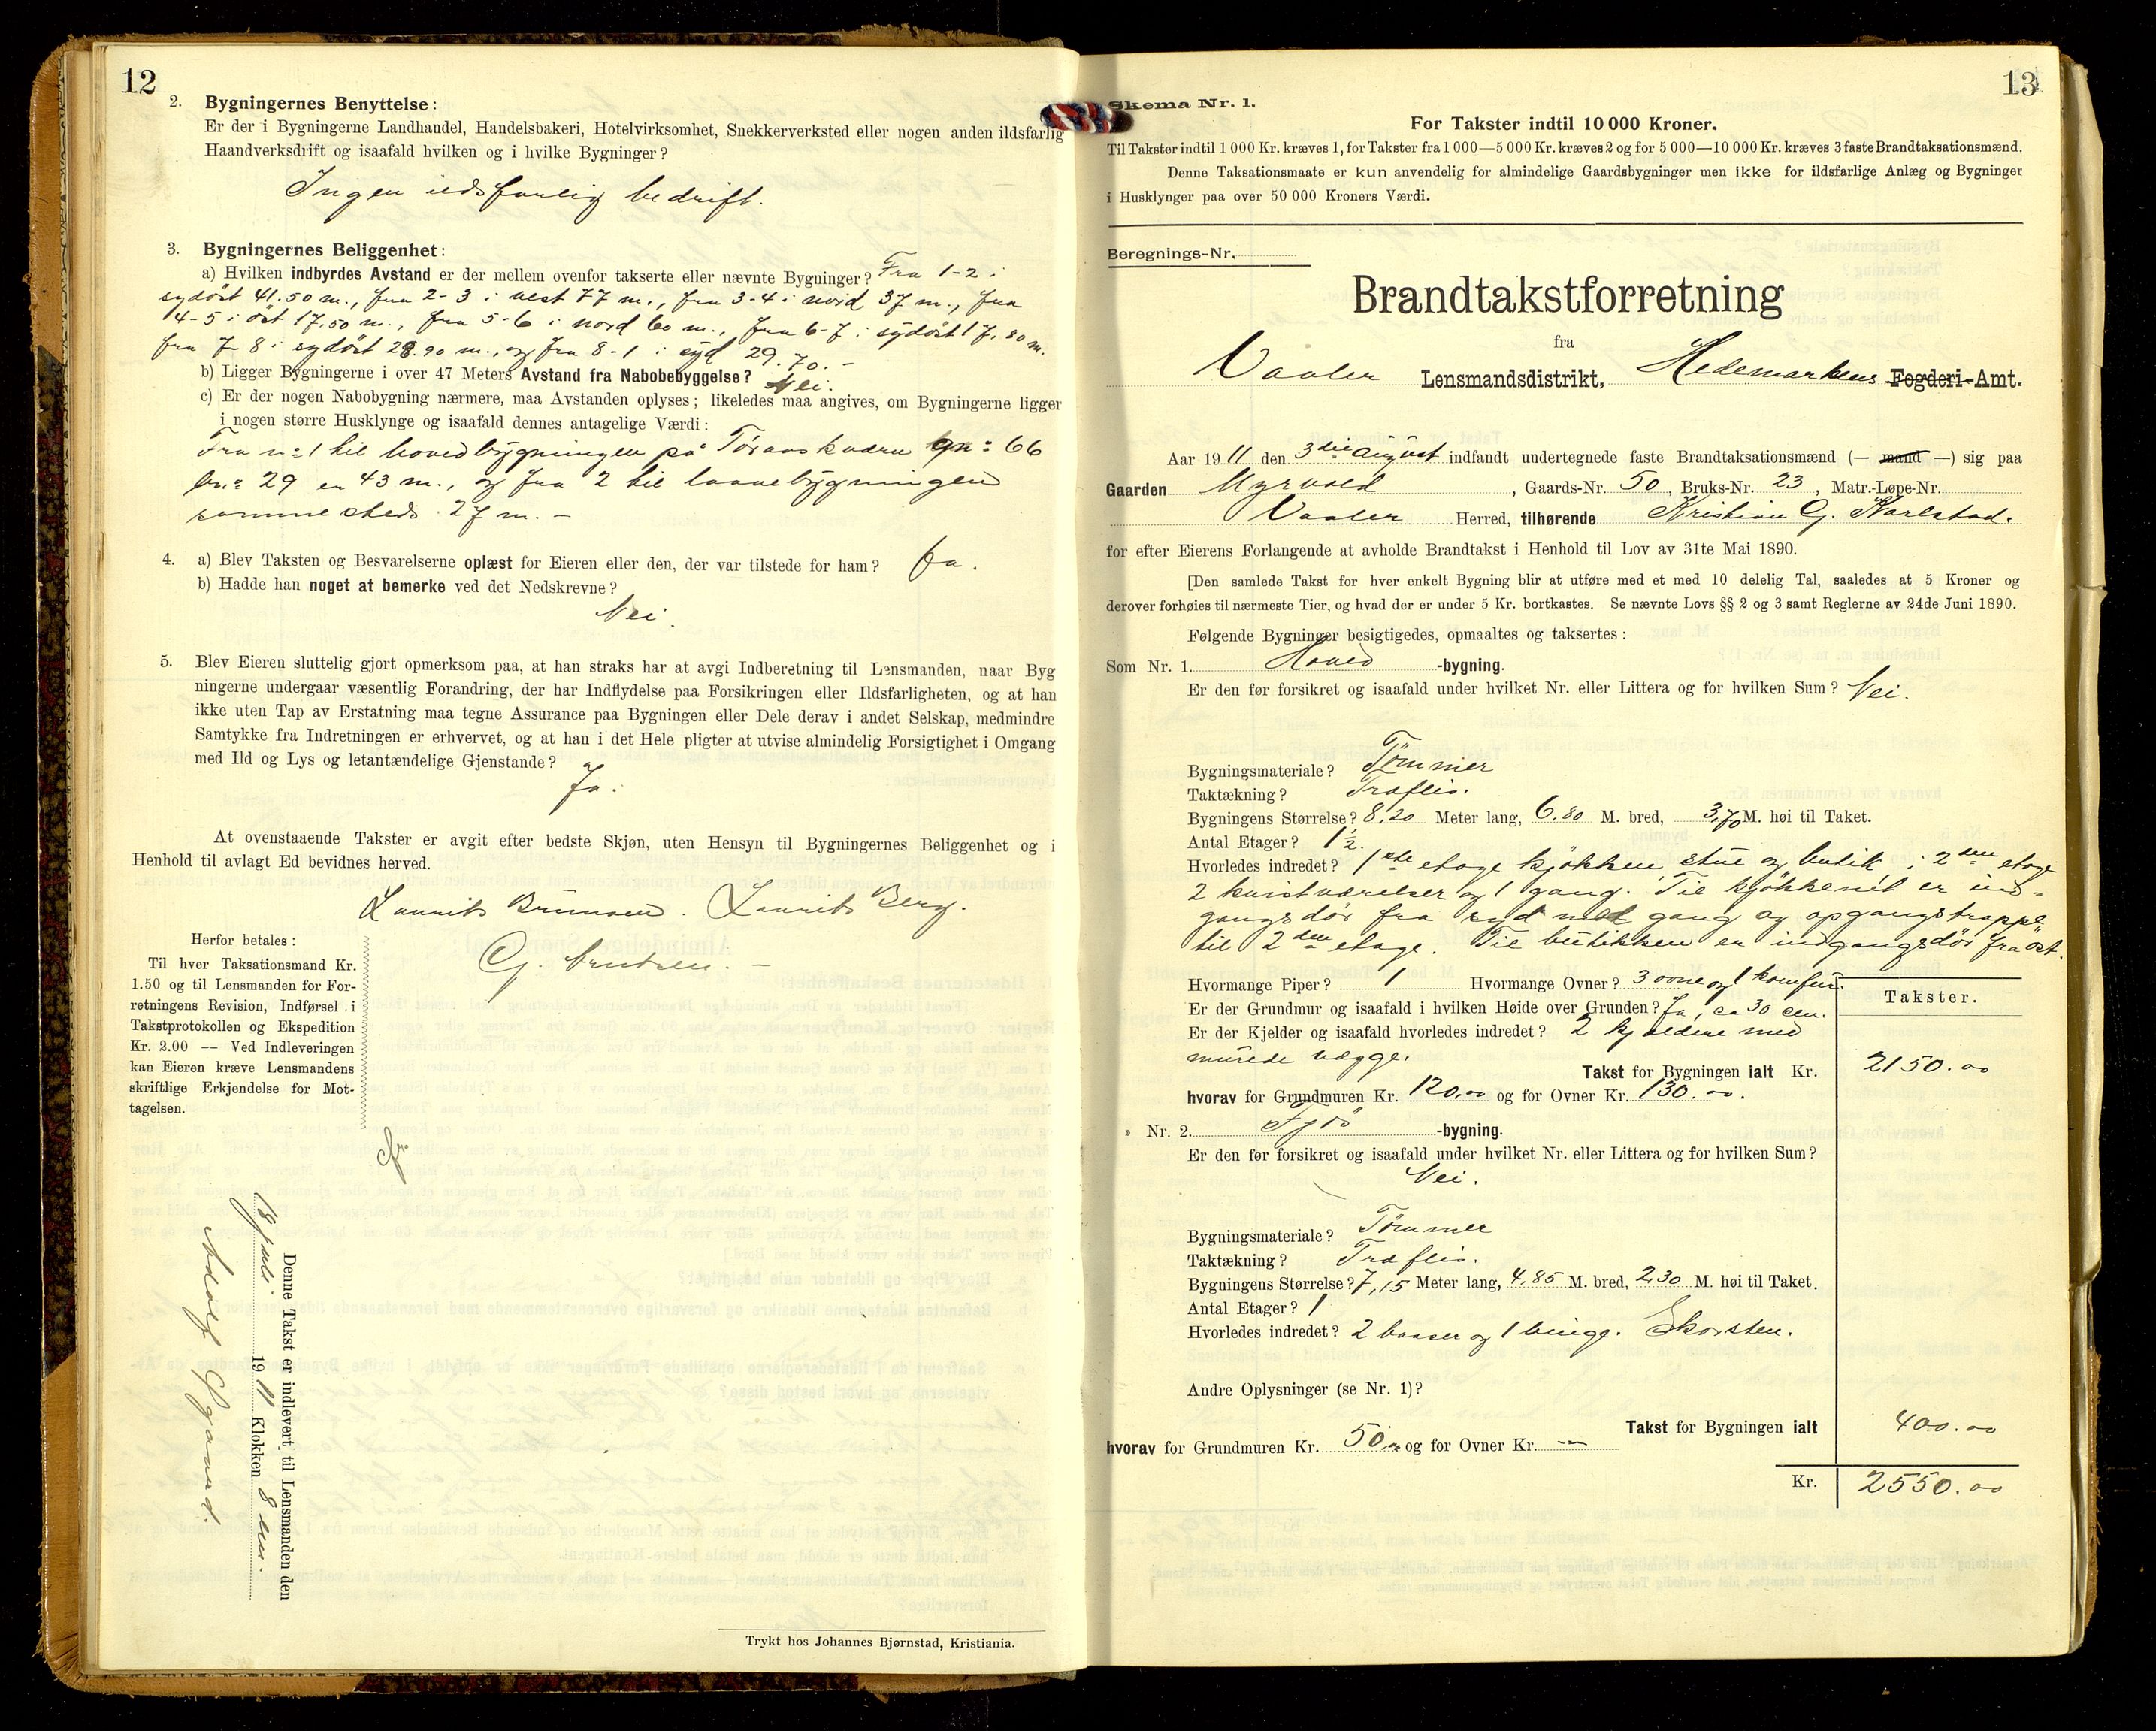 12
2. Bygningernes Benyttelse:
Er der i Bygningerne Landhandel, Handelsbakeri, Hotelvirksomhet, Snekkerverksted eller nogen anden ildsfarlig
Haandverksdrift og isaafald hvilken og i hvilke Bygninger?
Ingen ildsfarlig bedrift.
3. Bygningernes Beliggenhet:
a) Hvilken indbyrdes Avstand er der mellem ovenfor takserte eller nævnte Bygninger? Fra 1-2 i
sydöst 41.50 m., fra 2-3 i vest 77 m., fra 3-4 i nord 37 m., fra
4-5 i öst 17,50 m., fra 5-6 i nord 60 m., fra 6-7 i sydöst 17,80 m.
fra 7-8 i sydöst 28.90 m., og fra 8-1 i syd 29.70. -
b) Ligger Bygningerne i over 47 Meters Avstand fra Nabobebyggelse? Nei.
c) Er der nogen Nabobygning nærmere, maa Avstanden oplyses; likeledes maa angives, om Bygningerne ligger
i nogen større Husklynge og isaafald dennes antagelige Værdi:
Fra no 1 til hovedbygningen på gn: 66
bn: 29 er 43 m., og fra 2 til laavebygningen
sammesteds 27 m. -
4. a) Blev Taksten og Besvarelserne oplæst for Eieren eller den, der var tilstede for ham? Ja.
b) Hadde han noget at bemerke ved det Nedskrevne?
Nei.
5. Blev Eieren sluttelig gjort opmerksom paa, at han straks har at avgi Indberetning til Lensmanden, naar Byg
ningerne undergaar væsentlig Forandring, der har Indflydelse paa Forsikringen eller Ildsfarligheten, og at han
ikke uten Tap av Erstatning maa tegne Assurance paa Bygningen eller Dele derav i andet Selskap, medmindre
Samtykke fra Indretningen er erhvervet, og at han i det Hele pligter at utvise almindelig Forsigtighet i Omgang
med Ild og Lys og letantændelige Gjenstande?
Ja.
At ovenstaaende Takster er avgit efter bedste Skjøn, uten Hensyn til Bygningernes Beliggenhet og i
Henhold til avlagt Ed bevidnes herved.
Laurits Laurits Berg.
Herfor betales:
Til hver Taksationsmand Kr.
1.50 og til Lensmanden for For-
retningens Revision, Indførsel i
Takstprotokollen og Ekspedition
Kr. 2.00 — Ved Indleveringen
kan Eieren kræve Lensmandens
skriftlige Erkjendelse for Mot-
tagelsen.
Denne Takst er indlevert til Lensmanden den
18 juli 1911 Klokken 8 em.
Adolf
Trykt hos Johannes Bjørnstad, Kristiania.
13
Skema Nr. 1.
For Takster indtil 10 000 Kroner.
Til Takster indtil 1 000 Kr. kræves 1, for Takster fra 1 000—5 000 Kr. kræves 2 og for 5 000—10 000 Kr. kræves 3 faste Brandtaksationsmænd.
Denne Taksationsmaate er kun anvendelig for almindelige Gaardsbygninger men ikke for ildsfarlige Anlæg og Bygninger
i Husklynger paa over 50 000 Kroners Værdi.
Beregnings-Nr.
Brandtakstforretning
fra
Vaaler Lensmandsdistrikt, Hedemarkens Fogderi-Amt.
Aar 1911 den 3die august indfandt undertegnede faste Brandtaksationsmænd (— mand —) sig paa
Gaarden Myrvold, Gaards-Nr. 50, Bruks-Nr. 23, Matr.-Løpe-Nr.
Vaaler Herred, tilhørende Kristian G. Karlstad.
for efter Eierens Forlangende at avholde Brandtakst i Henhold til Lov av 31te Mai 1890.
[Den samlede Takst for hver enkelt Bygning blir at utføre med et med 10 delelig Tal, saaledes at 5 Kroner og
derover forhøies til nærmeste Tier, og hvad der er under 5 Kr. bortkastes. Se nævnte Lovs §§ 2 og 3 samt Reglerne av 24de Juni 1890.
Følgende Bygninger besigtigedes, opmaaltes og taksertes:
Som Nr. 1. Hoved -bygning.
Er den før forsikret og isaafald under hvilket Nr. eller Littera og for hvilken Sum? Nei.
Bygningsmateriale? Tømmer
Taktækning? Træflis.
Bygningens Størrelse? 8,20 Meter lang, 6.80 M. bred, 3,70 M. høi til Taket.
Antal Etager? 1½.
Hvorledes indredet? 1ste etage kjökken, stue og butik i 2den etage
2 kvistværelser og 1 gang. Til kjökkenet er ind-
gangsdör fra syd med gang og opgangstrappe
til 2den etage. Til butikken er indgangsdör fra öst.
Hvormange Piper? 1 Hvormange Ovner? 3 ovne og 1 komfur.
Takster.
Er der Grundmur og isaafald i hvilken Høide over Grunden? Ja, ca 30 cm.
Er der Kjelder og isaafald hvorledes indredet? 2 kjeldere med
murede vægge.
Takst for Bygningen ialt Kr. 2150.00
hvorav for Grundmuren Kr. 120,00 og for Ovner Kr. 130.00.
» Nr. 2. Fjös -bygning.
Er den før forsikret og isaafald under hvilket Nr. eller Littera og for hvilken Sum?
Nei.
Bygningsmateriale? Tømmer
Taktækning? Træflis.
Bygningens Størrelse? 7,15 Meter lang, 4,85 M. bred, 2,30 M. høi til Taket.
Antal Etager? 1
Hvorledes indredet? 2 baaser og 1 binge. Skorsten.
Andre Oplysninger (se Nr. 1)?
Takst for Bygningen ialt 400.00
hvorav for Grundmuren Kr. 50,00 og for Ovner Kr. —
Kr. 2550.00